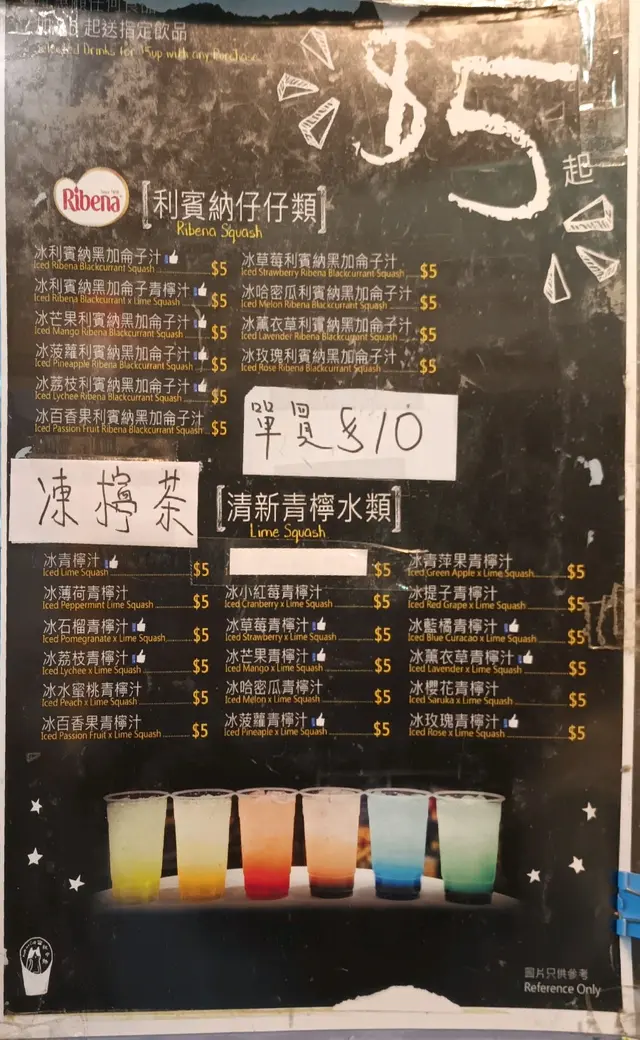 起送指定飲品
Selected Drinks for $5up with any Purchase
$5
起
Ribena
[利賓納仔仔類]
Ribena Squash
冰利賓納黑加侖子汁
Iced Ribena Blackcurrant Squash $5
冰利賓納黑加侖子青檸汁
Iced Ribena Blackcurrant x Lime Squash $5
冰芒果利賓納黑加侖子汁
Iced Mango Ribena Blackcurrant Squash $5
冰菠蘿利賓納黑加侖子汁
Iced Pineapple Ribena Blackcurrant Squash $5
冰荔枝利賓納黑加侖子汁
Iced Lychee Ribena Blackcurrant Squash $5
冰百香果利賓納黑加侖子汁
Iced Passion Fruit Ribena Blackcurrant Squash $5
冰草莓利賓納黑加侖子汁
Iced Strawberry Ribena Blackcurrant Squash $5
冰哈密瓜利賓納黑加侖子汁
Iced Melon Ribena Blackcurrant Squash $5
冰薰衣草利賓納黑加侖子汁
Iced Lavender Ribena Blackcurrant Squash $5
冰玫瑰利賓納黑加侖子汁
Iced Rose Ribena Blackcurrant Squash $5
單買$10
凍檸茶
[清新青檸水類]
Lime Squash
冰青檸汁
Iced Lime Squash $5
冰薄荷青檸汁
Iced Peppermint Lime Squash $5
冰石榴青檸汁
Iced Pomegranate x Lime Squash $5
冰荔枝青檸汁
Iced Lychee x Lime Squash $5
冰水蜜桃青檸汁
Iced Peach x Lime Squash $5
冰百香果青檸汁
Iced Passion Fruit x Lime Squash $5
$5
冰小紅莓青檸汁
Iced Cranberry x Lime Squash $5
冰草莓青檸汁
Iced Strawberry x Lime Squash $5
冰芒果青檸汁
Iced Mango x Lime Squash $5
冰哈密瓜青檸汁
Iced Melon x Lime Squash $5
冰菠蘿青檸汁
Iced Pineapple x Lime Squash $5
冰青萍果青檸汁
Iced Green Apple x Lime Squash $5
冰提子青檸汁
Iced Red Grape x Lime Squash $5
冰藍橘青檸汁
Iced Blue Curacao x Lime Squash $5
冰薰衣草青檸汁
Iced Lavender x Lime Squash $5
冰櫻花青檸汁
Iced Saruka x Lime Squash $5
冰玫瑰青檸汁
Iced Rose x Lime Squash $5
圖片只供參考
Reference Only